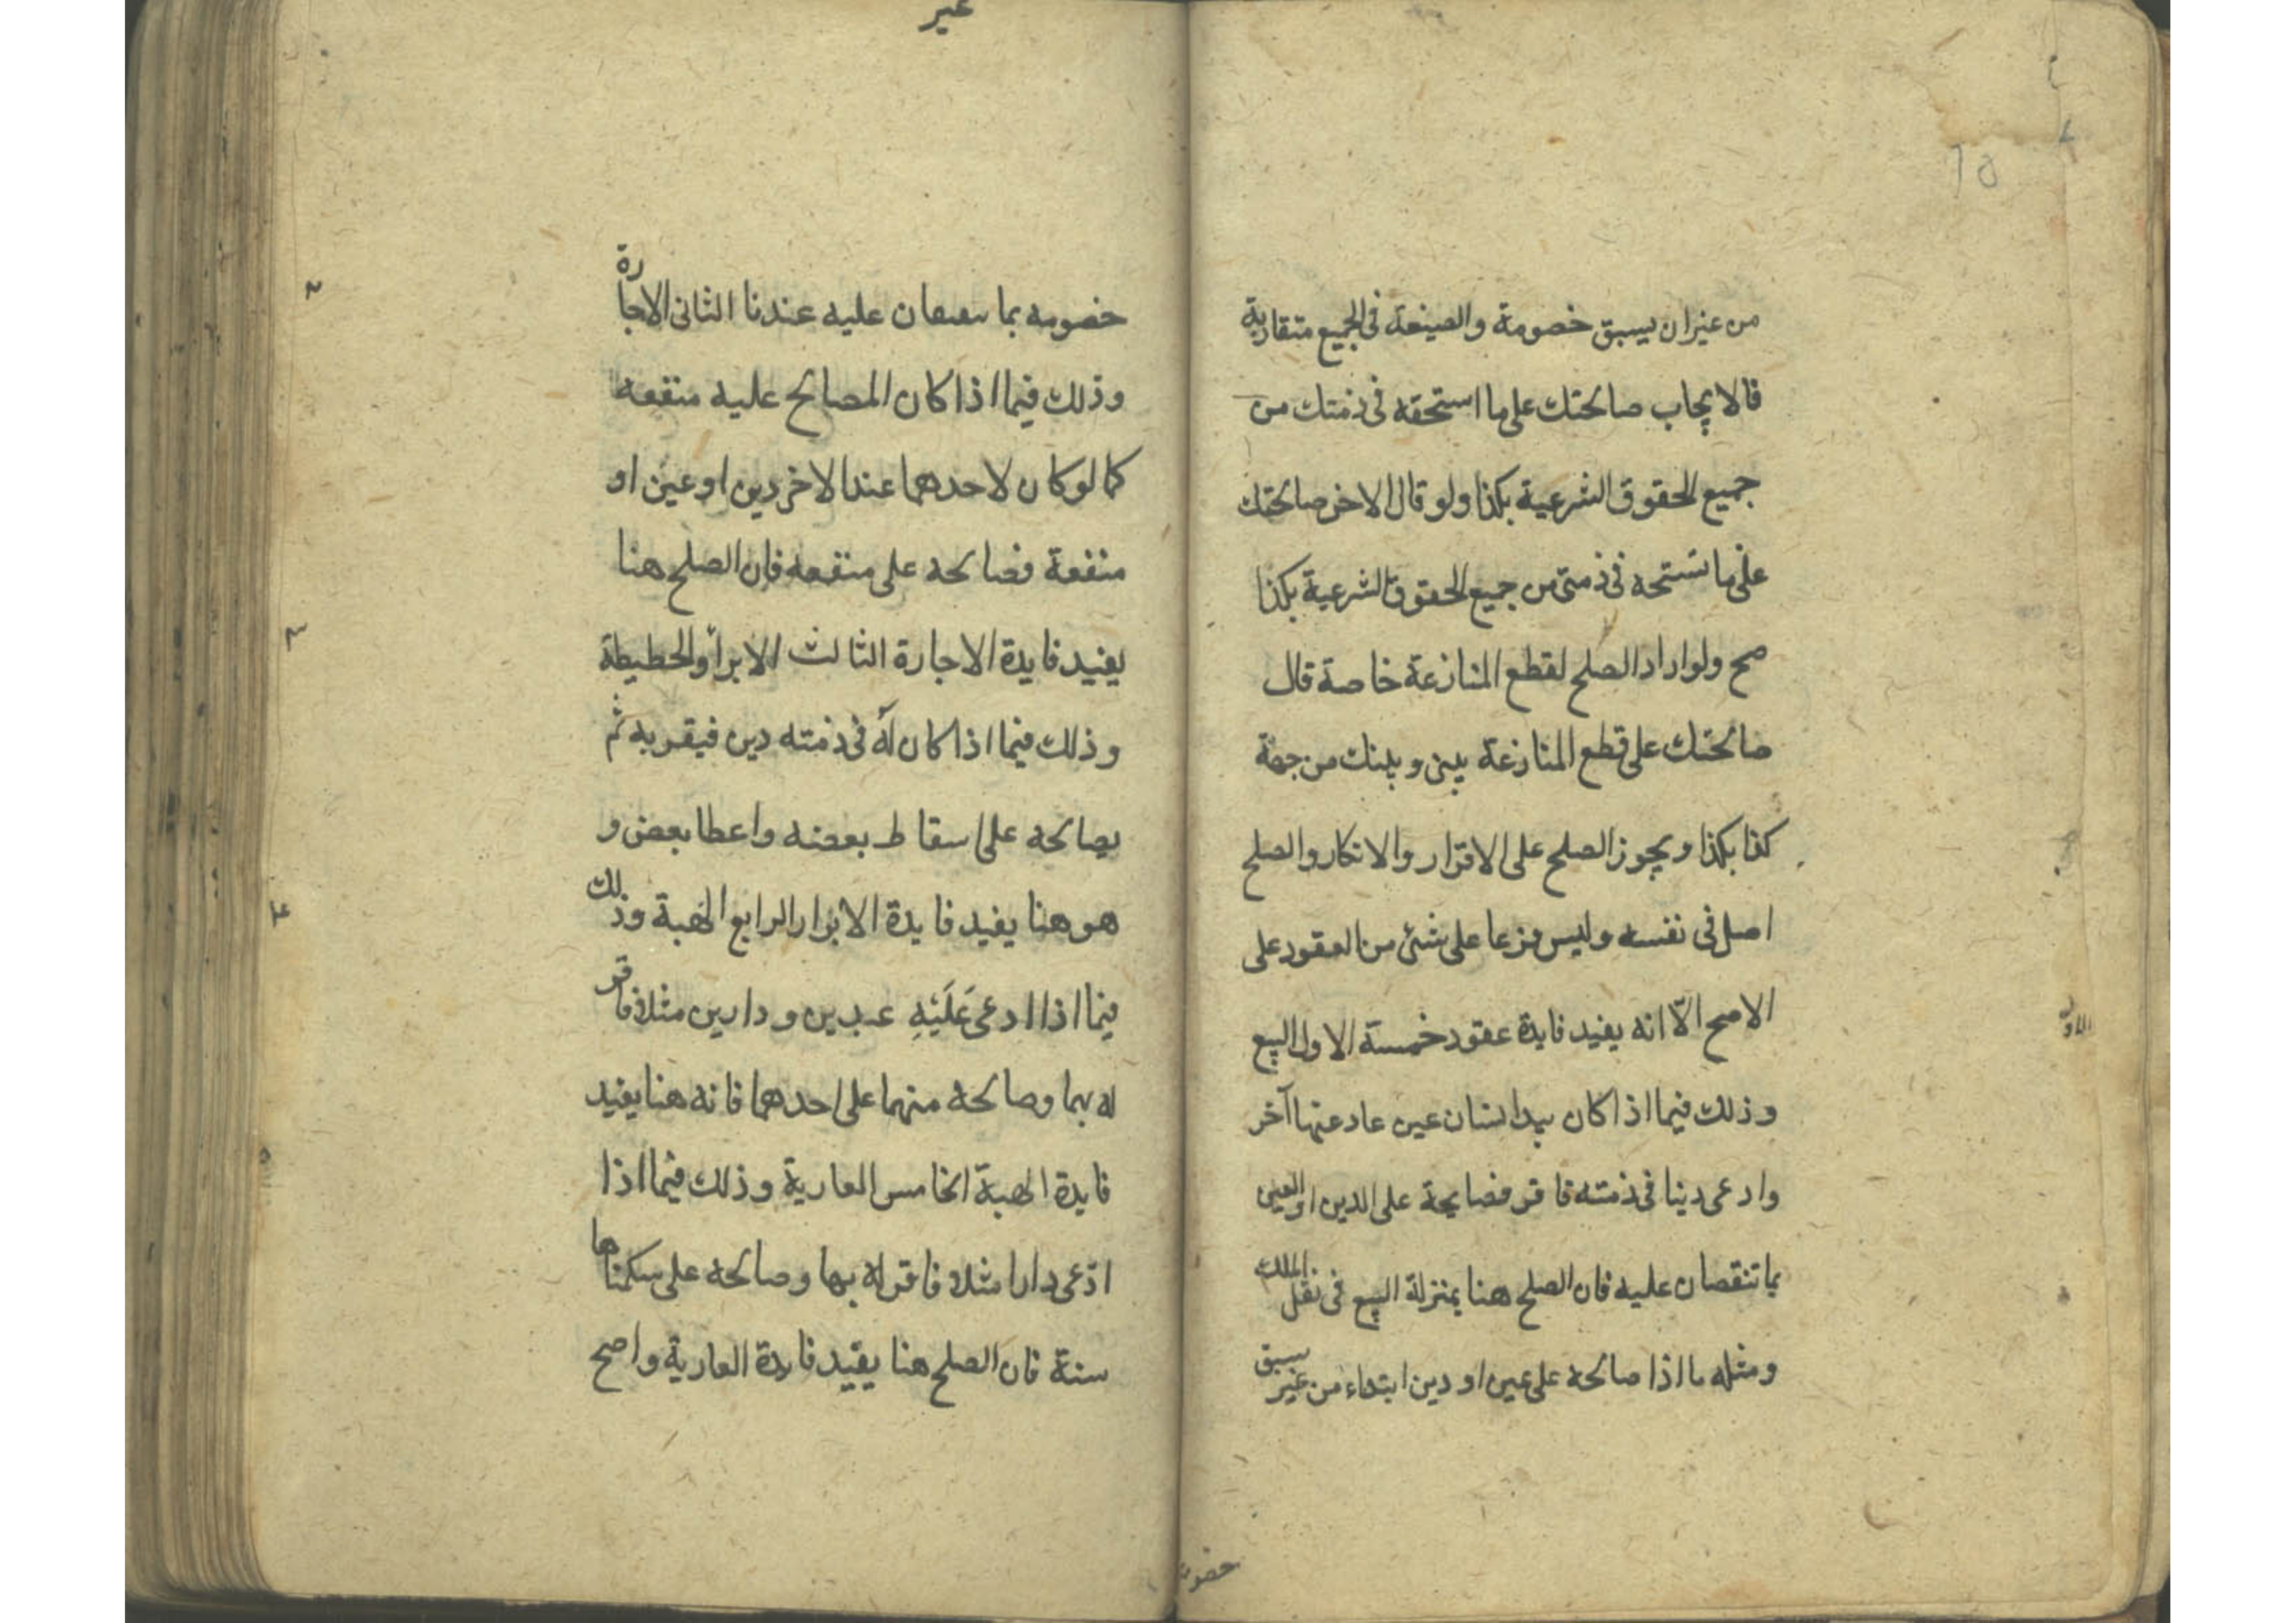 من غير ان يسبق خصومة والصيغة فى الجميع متقاربة
فالايجاب صالحتك على ما استحقه فى ذمتك من
جميع الحقوق الشرعية بكذا ولو قال الاخر صالحتك
على ما تستحه فى ذمتى من جميع الحقوق الشرعية بكذا
صح ولو اراد الصلح لقطع المنازعة خاصة قال
صالحتك على قطع المنازعة بينى وبينك من جهة
كذا بكذا ويجوز الصلح على الاقرار والانكار والصلح
اصل فى نفسه وليس فرعا على شئ من العقود على
الاصح الّا انه يفيد فايدة عقود خمسة الاول البيع
وذلك فيما اذا كان بيد انسان عين عادعتها آخر
وادعى دينا فى ذمته فاقر فصايحة على الدين او العين
بما تنقصان عليه فان الصلح هنا بمنزلة البيع فى نقل الملك
ومثله ما اذا صالحه على عين او دين ابتداء من غير سبق
خصومه
غير
خصومه بما سعىعان عليه عندنا الثانى الاجارة
وذلك فيما اذا كان المصالح عليه منفعه
كما لو كان لاحدهما عند الاخر دين او عين او
منفعة فصالحه على منفعه فان الصلح هنا
يفيد فايدة الاجارة الثالث الابرآ والحطيطة
وذلك فيما اذا كان له فى ذمته دين فيقر به ثم
يصالحه على اسقاط بعضه واعطا بعض و
هو هنا يفيد فايدة الابرار الرابع الهبة وذلك
فيما اذا ادعى عَلَيْهِ عبدين ودارين مثلا فاقر
له بهما وصالحه منهما على احدهما فانه هنا يفيد
فايدة الهبة الخامس العارية وذلك فيما اذا
ادّعى دارا مثلا فاقر له بها وصالحه على سكناها
سنة فان الصلح هنا يفيد فايدة العارية واصح